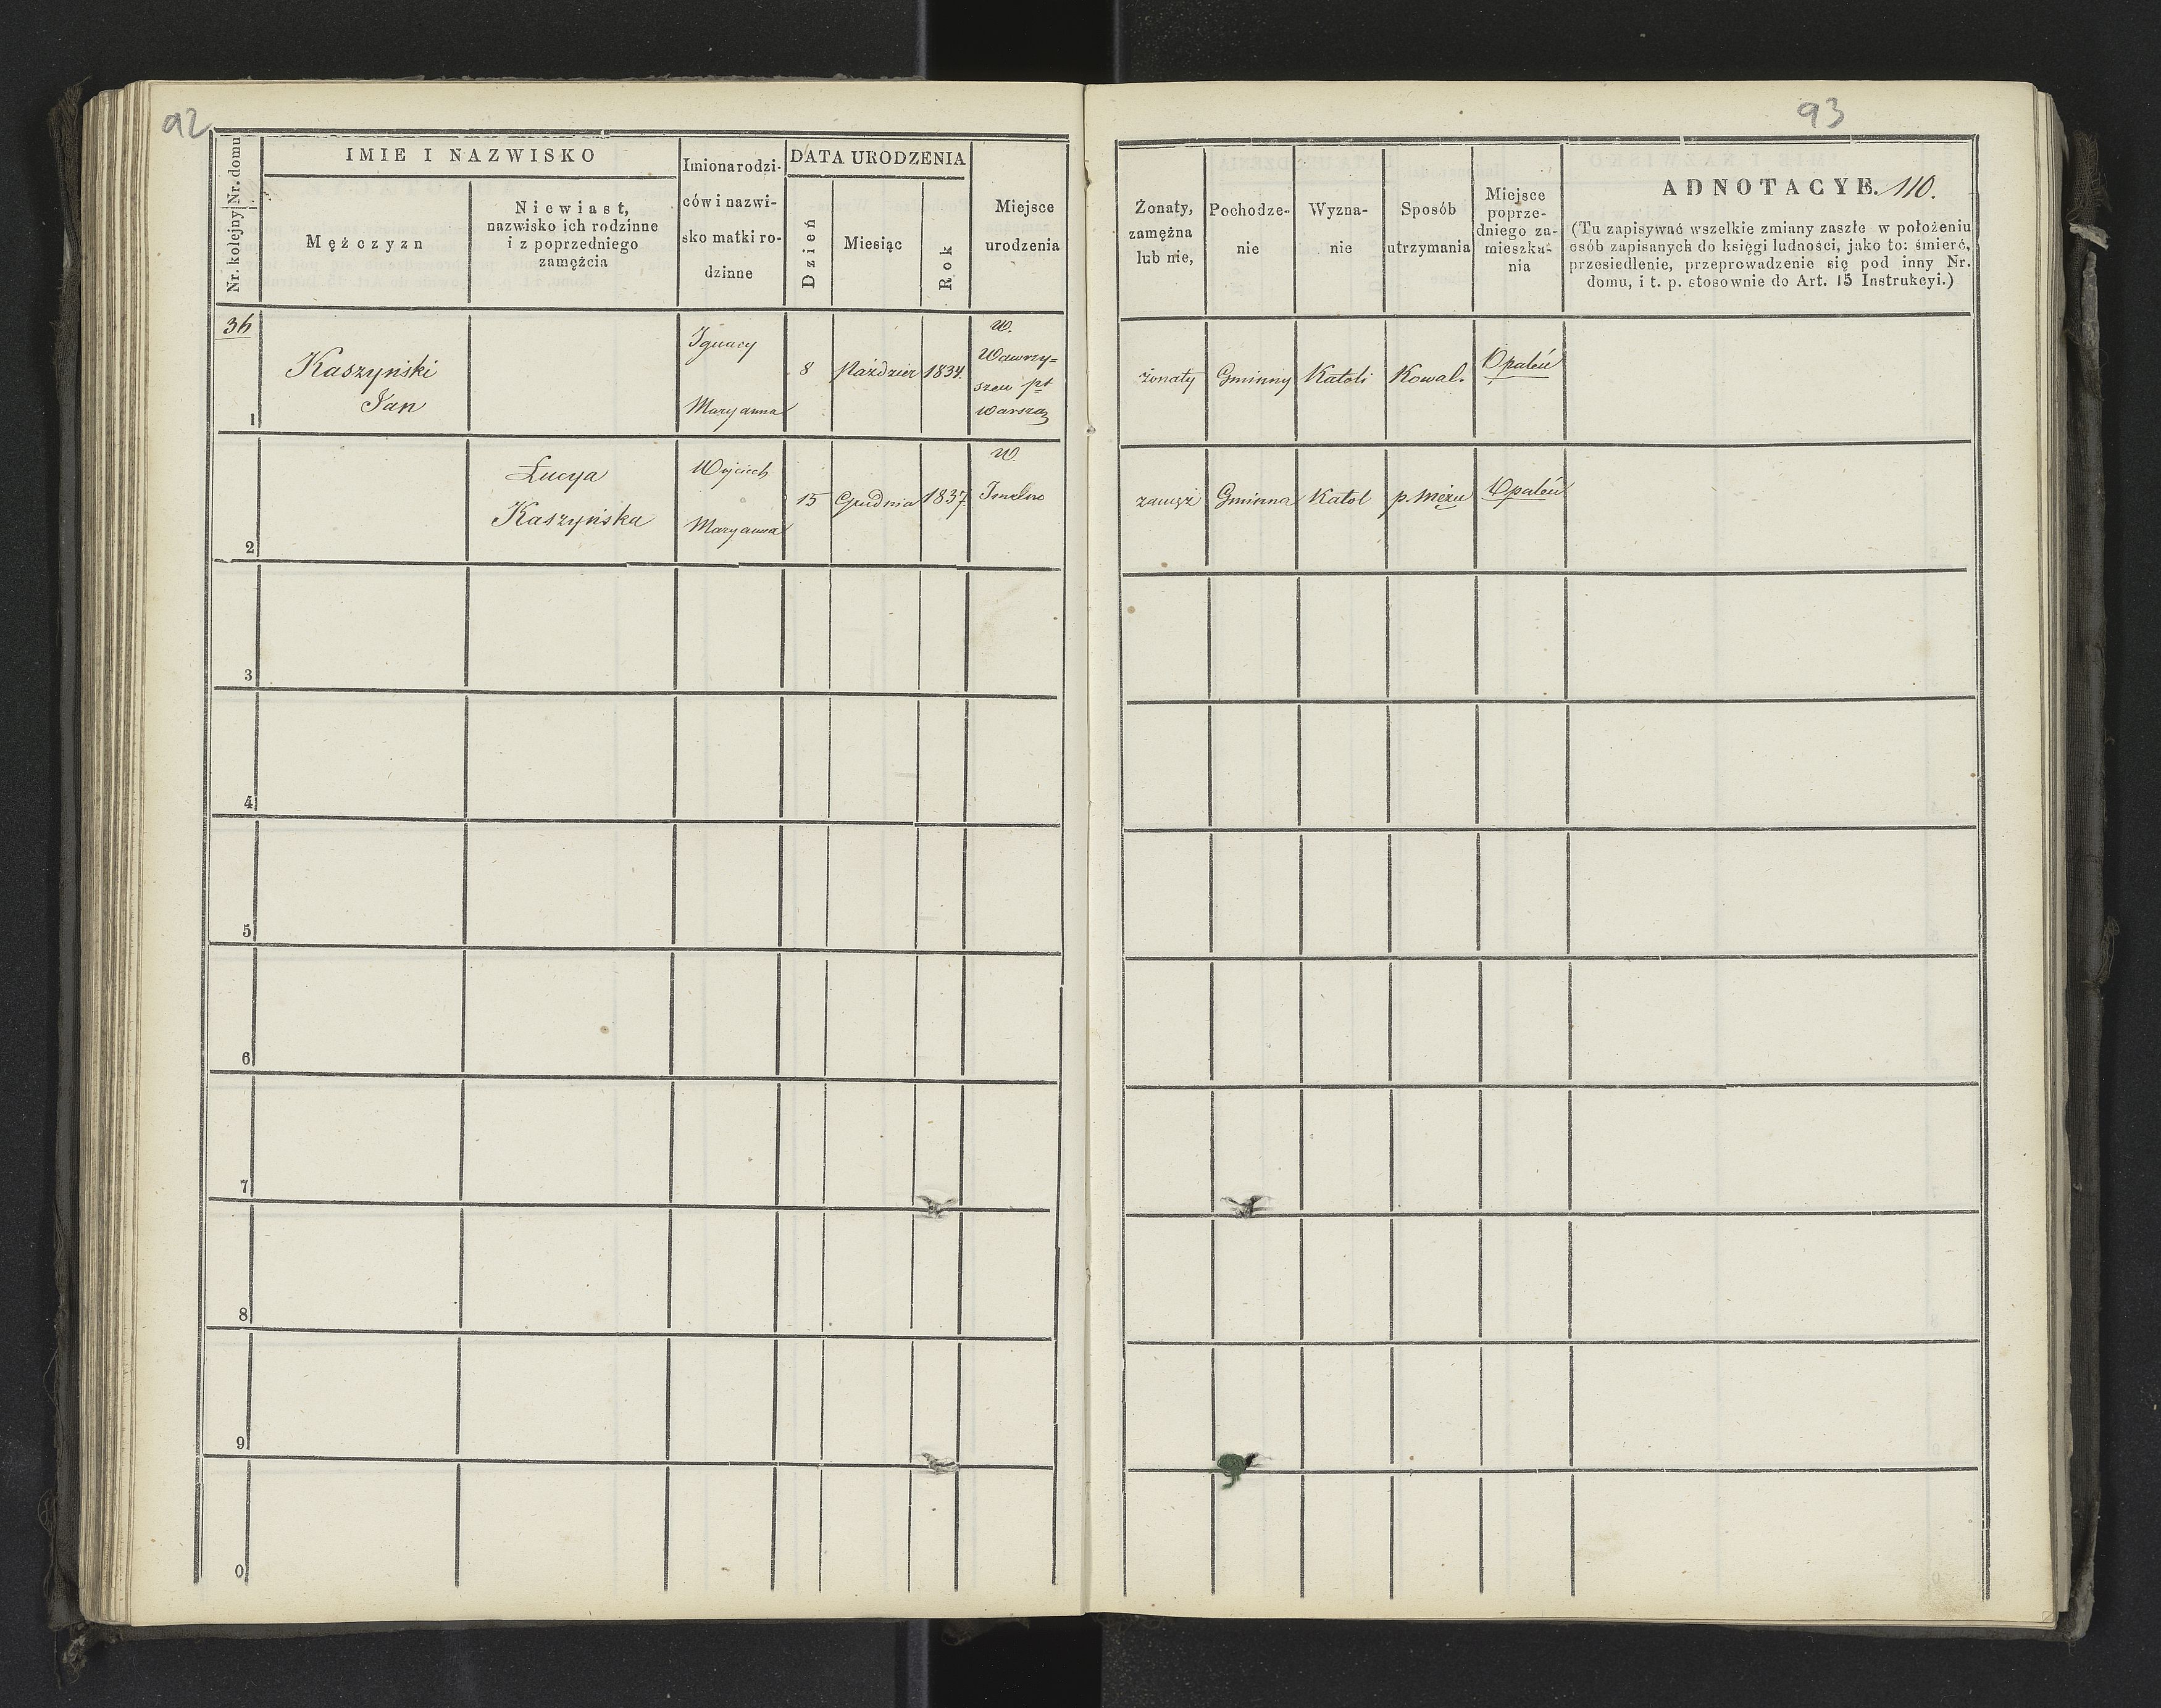 92
Nr. kolejny Nr. domu
IMIE I NAZWISKO
Mężczyzn
Niewiast,
nazwisko ich rodzinne
i z poprzedniego
zamężcia
Imiona rodzi-
ców i nazwi-
sko matki ro-
dzinne
DATA URODZENIA
Dzień
Miesiąc
Rok
Miejsce
urodzenia
36
1
Kaszyński
Jan
Ignacy
Maryanna
8
Paździer
1834.
W.
Wawrzy=
szew pt
Warsza
2
Łucya
Kaszyńska
Wojciech
Maryanna
15
Grudnia
1837.
W.
3
4
5
6
7
8
9
0
93
Żonaty,
zamężna
lub nie,
Pochodze-
nie
Wyzna-
nie
Sposób
utrzymania
Miejsce
poprze-
dniego za-
mieszka-
nia
ADNOTACYE. 110.
(Tu zapisywać wszelkie zmiany zaszłe w położeniu
osób zapisanych do księgi ludności, jako to: śmierć,
przesiedlenie, przeprowadzenie się pod inny Nr.
domu, i t. p. stosownie do Art. 15 Instrukcyi.)
żonaty
Gminny
Katoli
Kowal.
Opaleń
zamęż
Gminna
Katol
p. Mężu
Opaleń